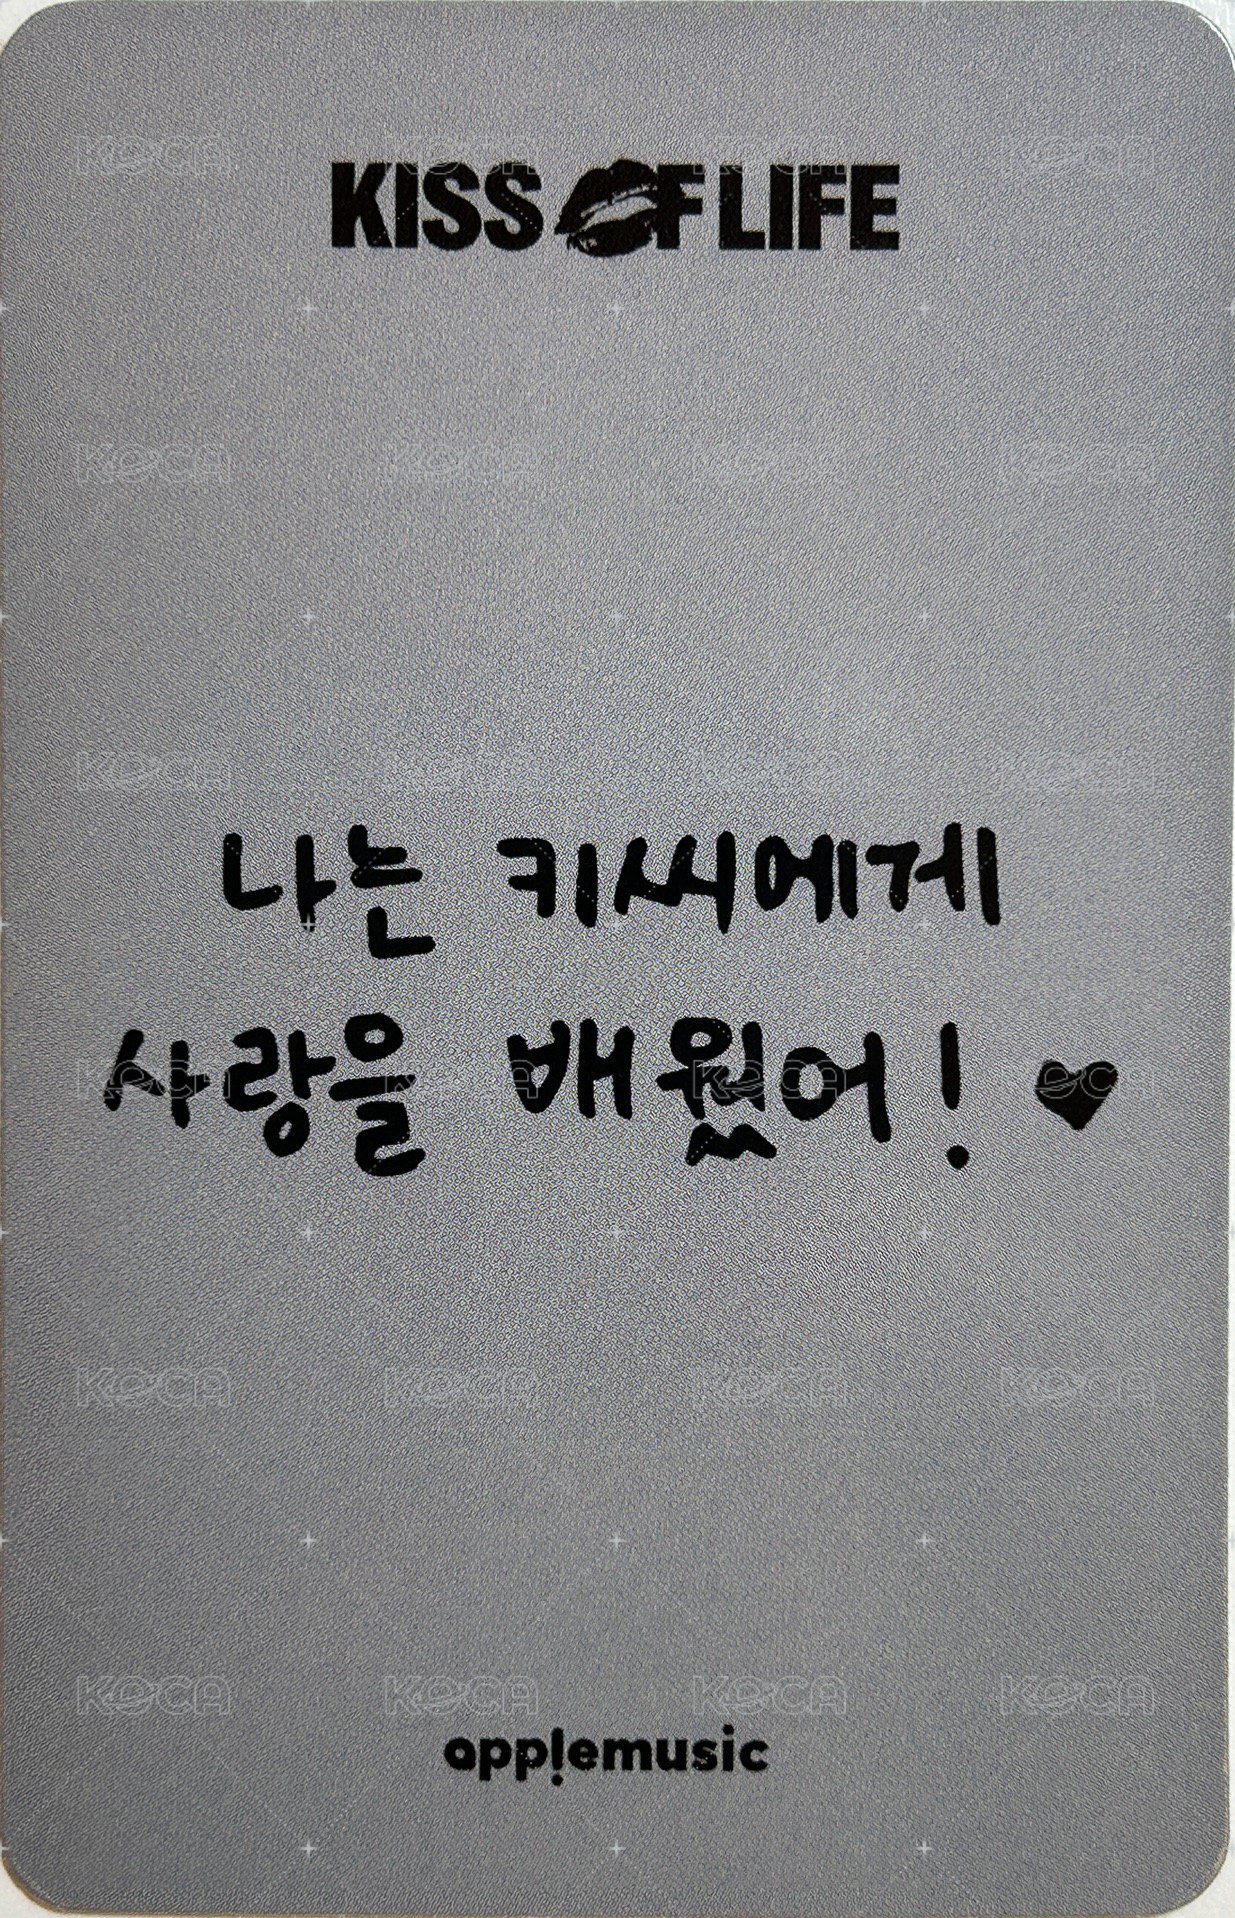 KISS OF LIFE
나는 키씨에게
사랑을 배웠어! ♥
applemusic
KOCA